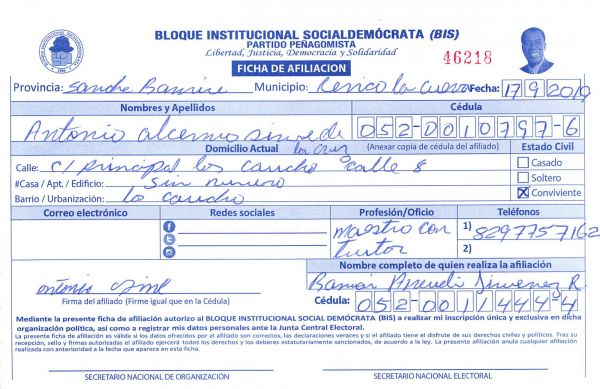 BLOQUE INSTITUCIONAL SOCIALDEMÓCRATA (BIS)
PARTIDO PEÑAGOMISTA
Libertad, Justicia, Democracia y Solidaridad
46218
FICHA DE AFILIACION
Provincia: Municipio: la Cueva Fecha: 17/9/2019
Nombres y Apellidos Cédula
Antonio 052-0010797-6
Domicilio Actual (Anexar copia de cédula del afiliado) Estado Civil
la Cruz
Calle: c/ principal los caucho calle 8 Casado
#Casa / Apt. / Edificio: sin numero Soltero
Barrio / Urbanización: lo caucho X Conviviente
Correo electrónico Redes sociales Profesión/Oficio Teléfonos
Maestro con 1) 8297757162
tutor 2)
Nombre completo de quien realiza la afiliación
Jimenez R.
Firma del afiliado (Firme igual que en la Cédula) Cédula: 052-0011444-4
Mediante la presente ficha de afiliación autorizo al BLOQUE INSTITUCIONAL SOCIAL DEMÓCRATA (BIS) a realizar mi inscripción única y exclusiva en dicha
organización política, así como a registrar mis datos personales ante la Junta Central Electoral.
La presente ficha de afiliación es válida si los datos ofrecidos por el afiliado son correctos, las declaraciones veraces y si el afiliado tiene el disfrute de sus derechos civiles y políticos. Tras su
recepción, sello y firmas autorizadas el afiliado ejercerá todos los derechos y los deberes estatutariamente sancionados, de acuerdo a la ley. La presente afiliación anula cualquier afiliación
realizada con anterioridad a la fecha que aparece en esta ficha.
SECRETARIO NACIONAL DE ORGANIZACIÓN SECRETARIO NACIONAL ELECTORAL